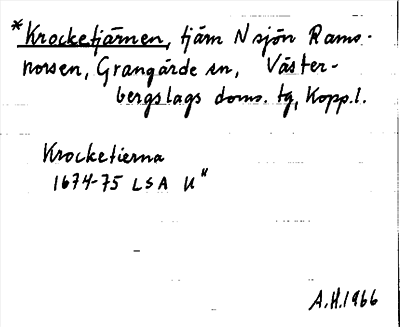 *Krocketjärnen, tjärn N sjön Rams-
norsen, Grangärde sn, Väster-
bergslags doms. tg, Kopp.l.
Krocketierna
1674-75 LSA U"
A.H.1966